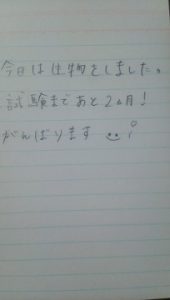 今日は生物をしました。
試験まであと2ヵ月！
がんばります